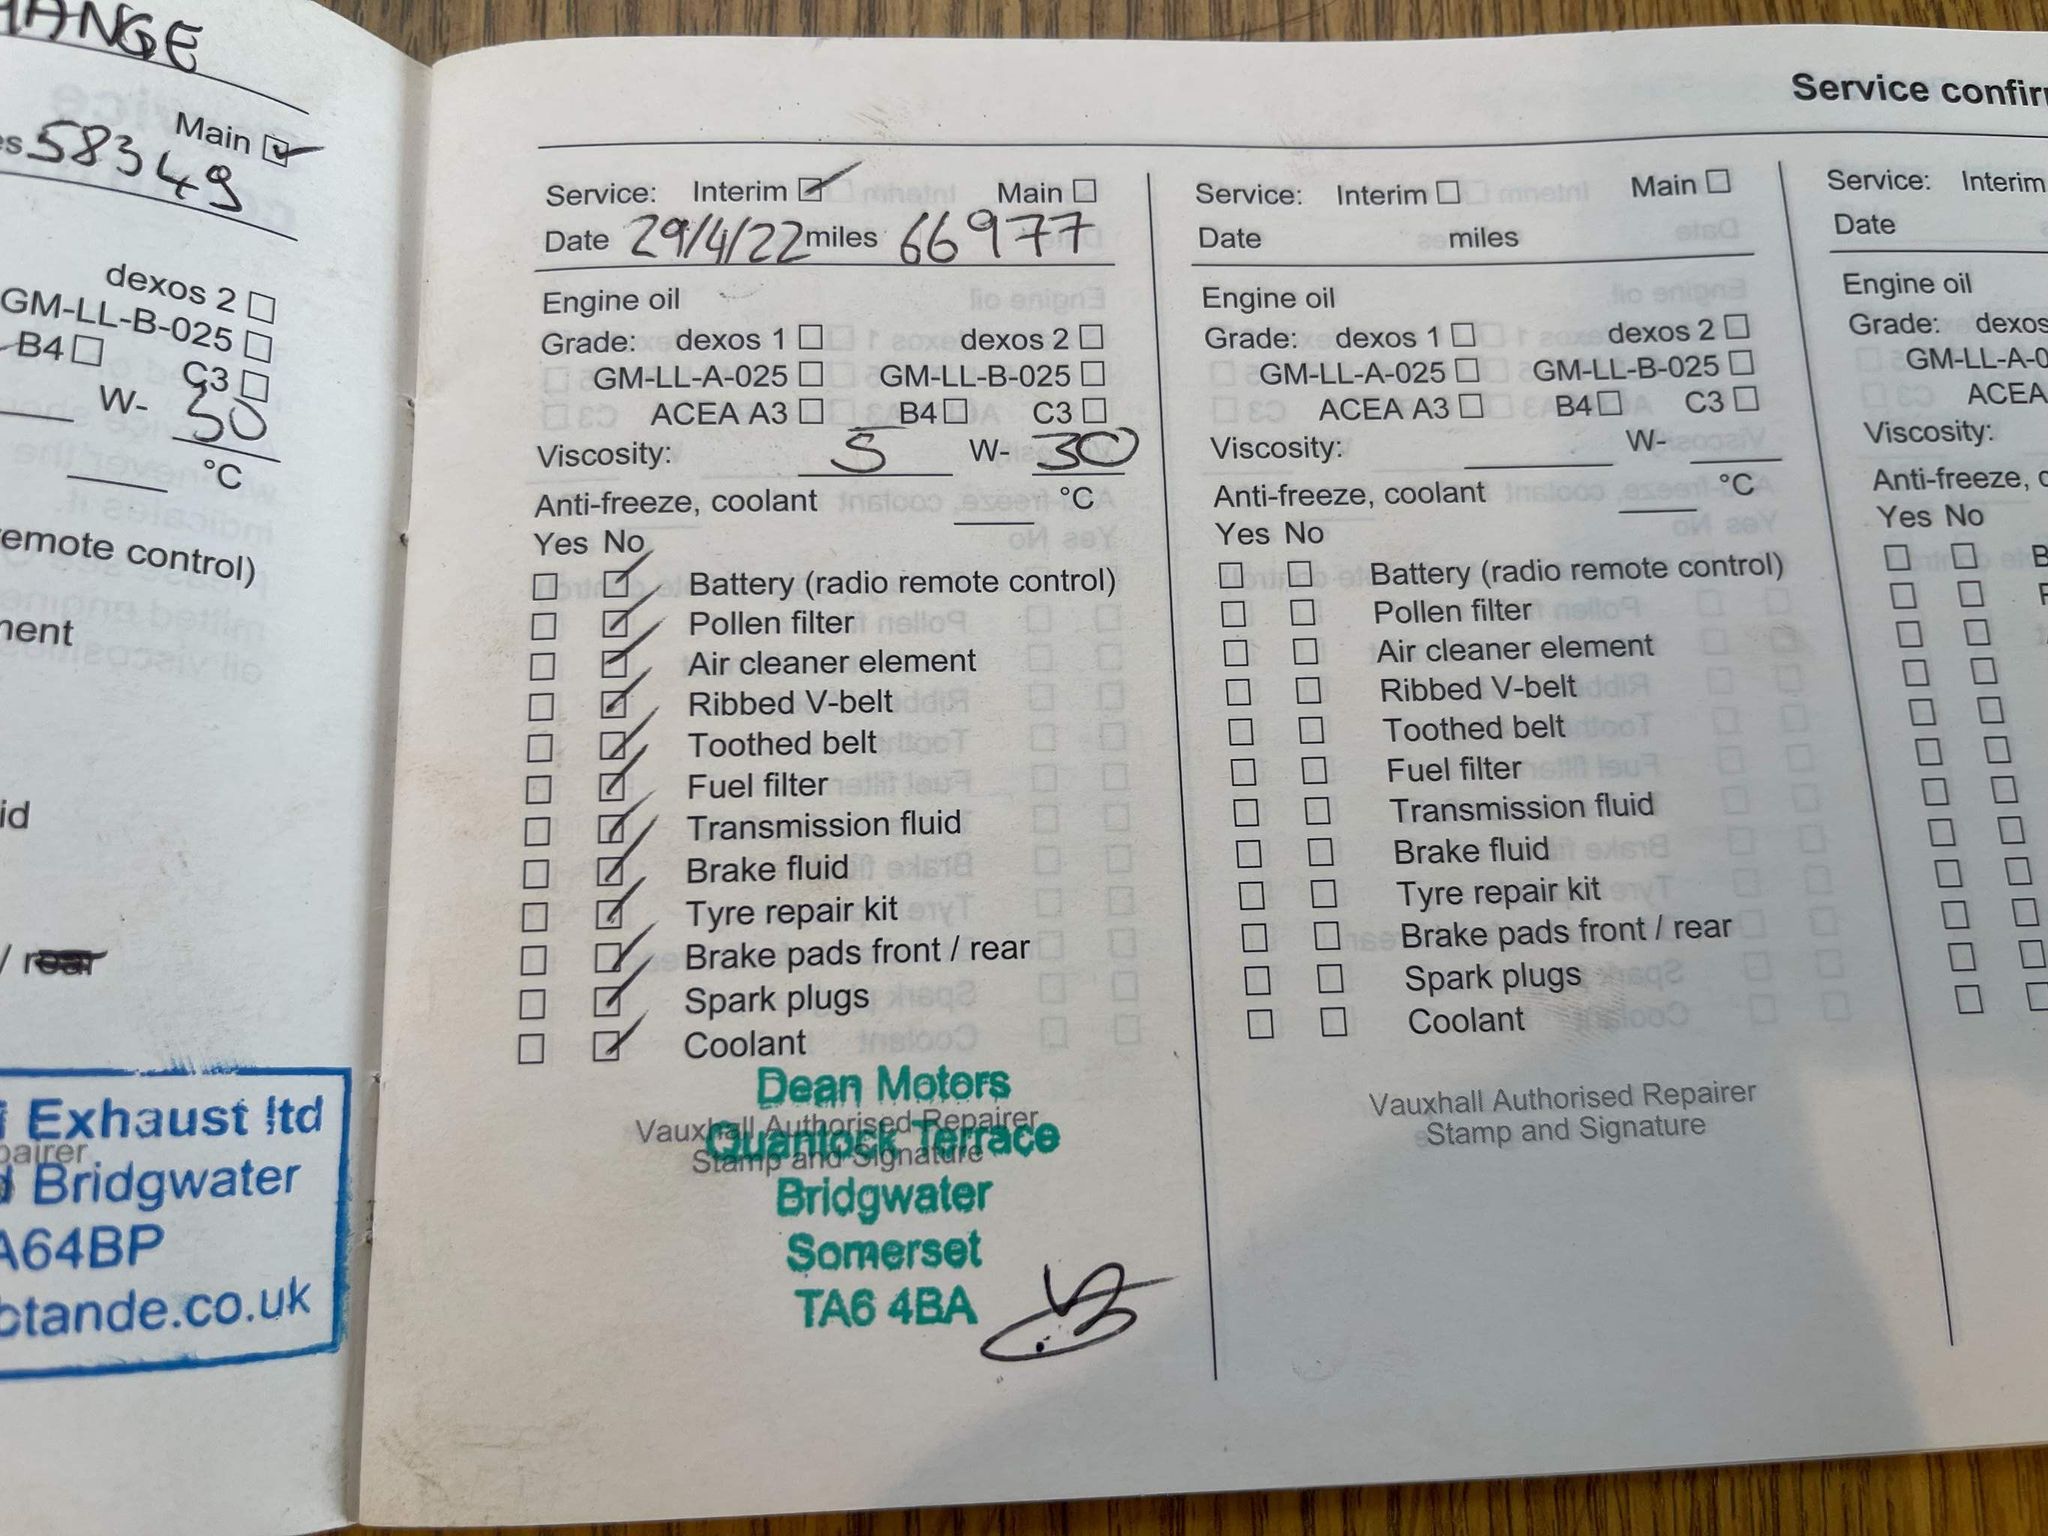 HANGE
Main
58349
dexos 2
GM-LL-B-025
B4 C3
W- 30
°C
remote control)
/ rear
Exhaust ltd
Bridgwater
A64BP
ctande.co.uk
Service confir
Service: Interim Main
Date 29/4/22 miles 66977
Engine oil
Grade: dexos 1 dexos 2
GM-LL-A-025 GM-LL-B-025
ACEA A3 B4 C3
Viscosity: 5 W- 30
Anti-freeze, coolant °C
Yes No
Battery (radio remote control)
Pollen filter
Air cleaner element
Ribbed V-belt
Toothed belt
Fuel filter
Transmission fluid
Brake fluid
Tyre repair kit
Brake pads front / rear
Spark plugs
Coolant
Dean Motors
Vauxhall Authorised Repairer
Quantock Terrace
Stamp and Signature
Bridgwater
Somerset
TA6 4BA
Service: Interim Main
Date miles
Engine oil
Grade: dexos 1 dexos 2
GM-LL-A-025 GM-LL-B-025
ACEA A3 B4 C3
Viscosity: W-
Anti-freeze, coolant °C
Yes No
Battery (radio remote control)
Pollen filter
Air cleaner element
Ribbed V-belt
Toothed belt
Fuel filter
Transmission fluid
Brake fluid
Tyre repair kit
Brake pads front / rear
Spark plugs
Coolant
Vauxhall Authorised Repairer
Stamp and Signature
Service: Interim
Date
Engine oil
Grade: dexos
GM-LL-A-0
ACEA
Viscosity:
Anti-freeze, c
Yes No